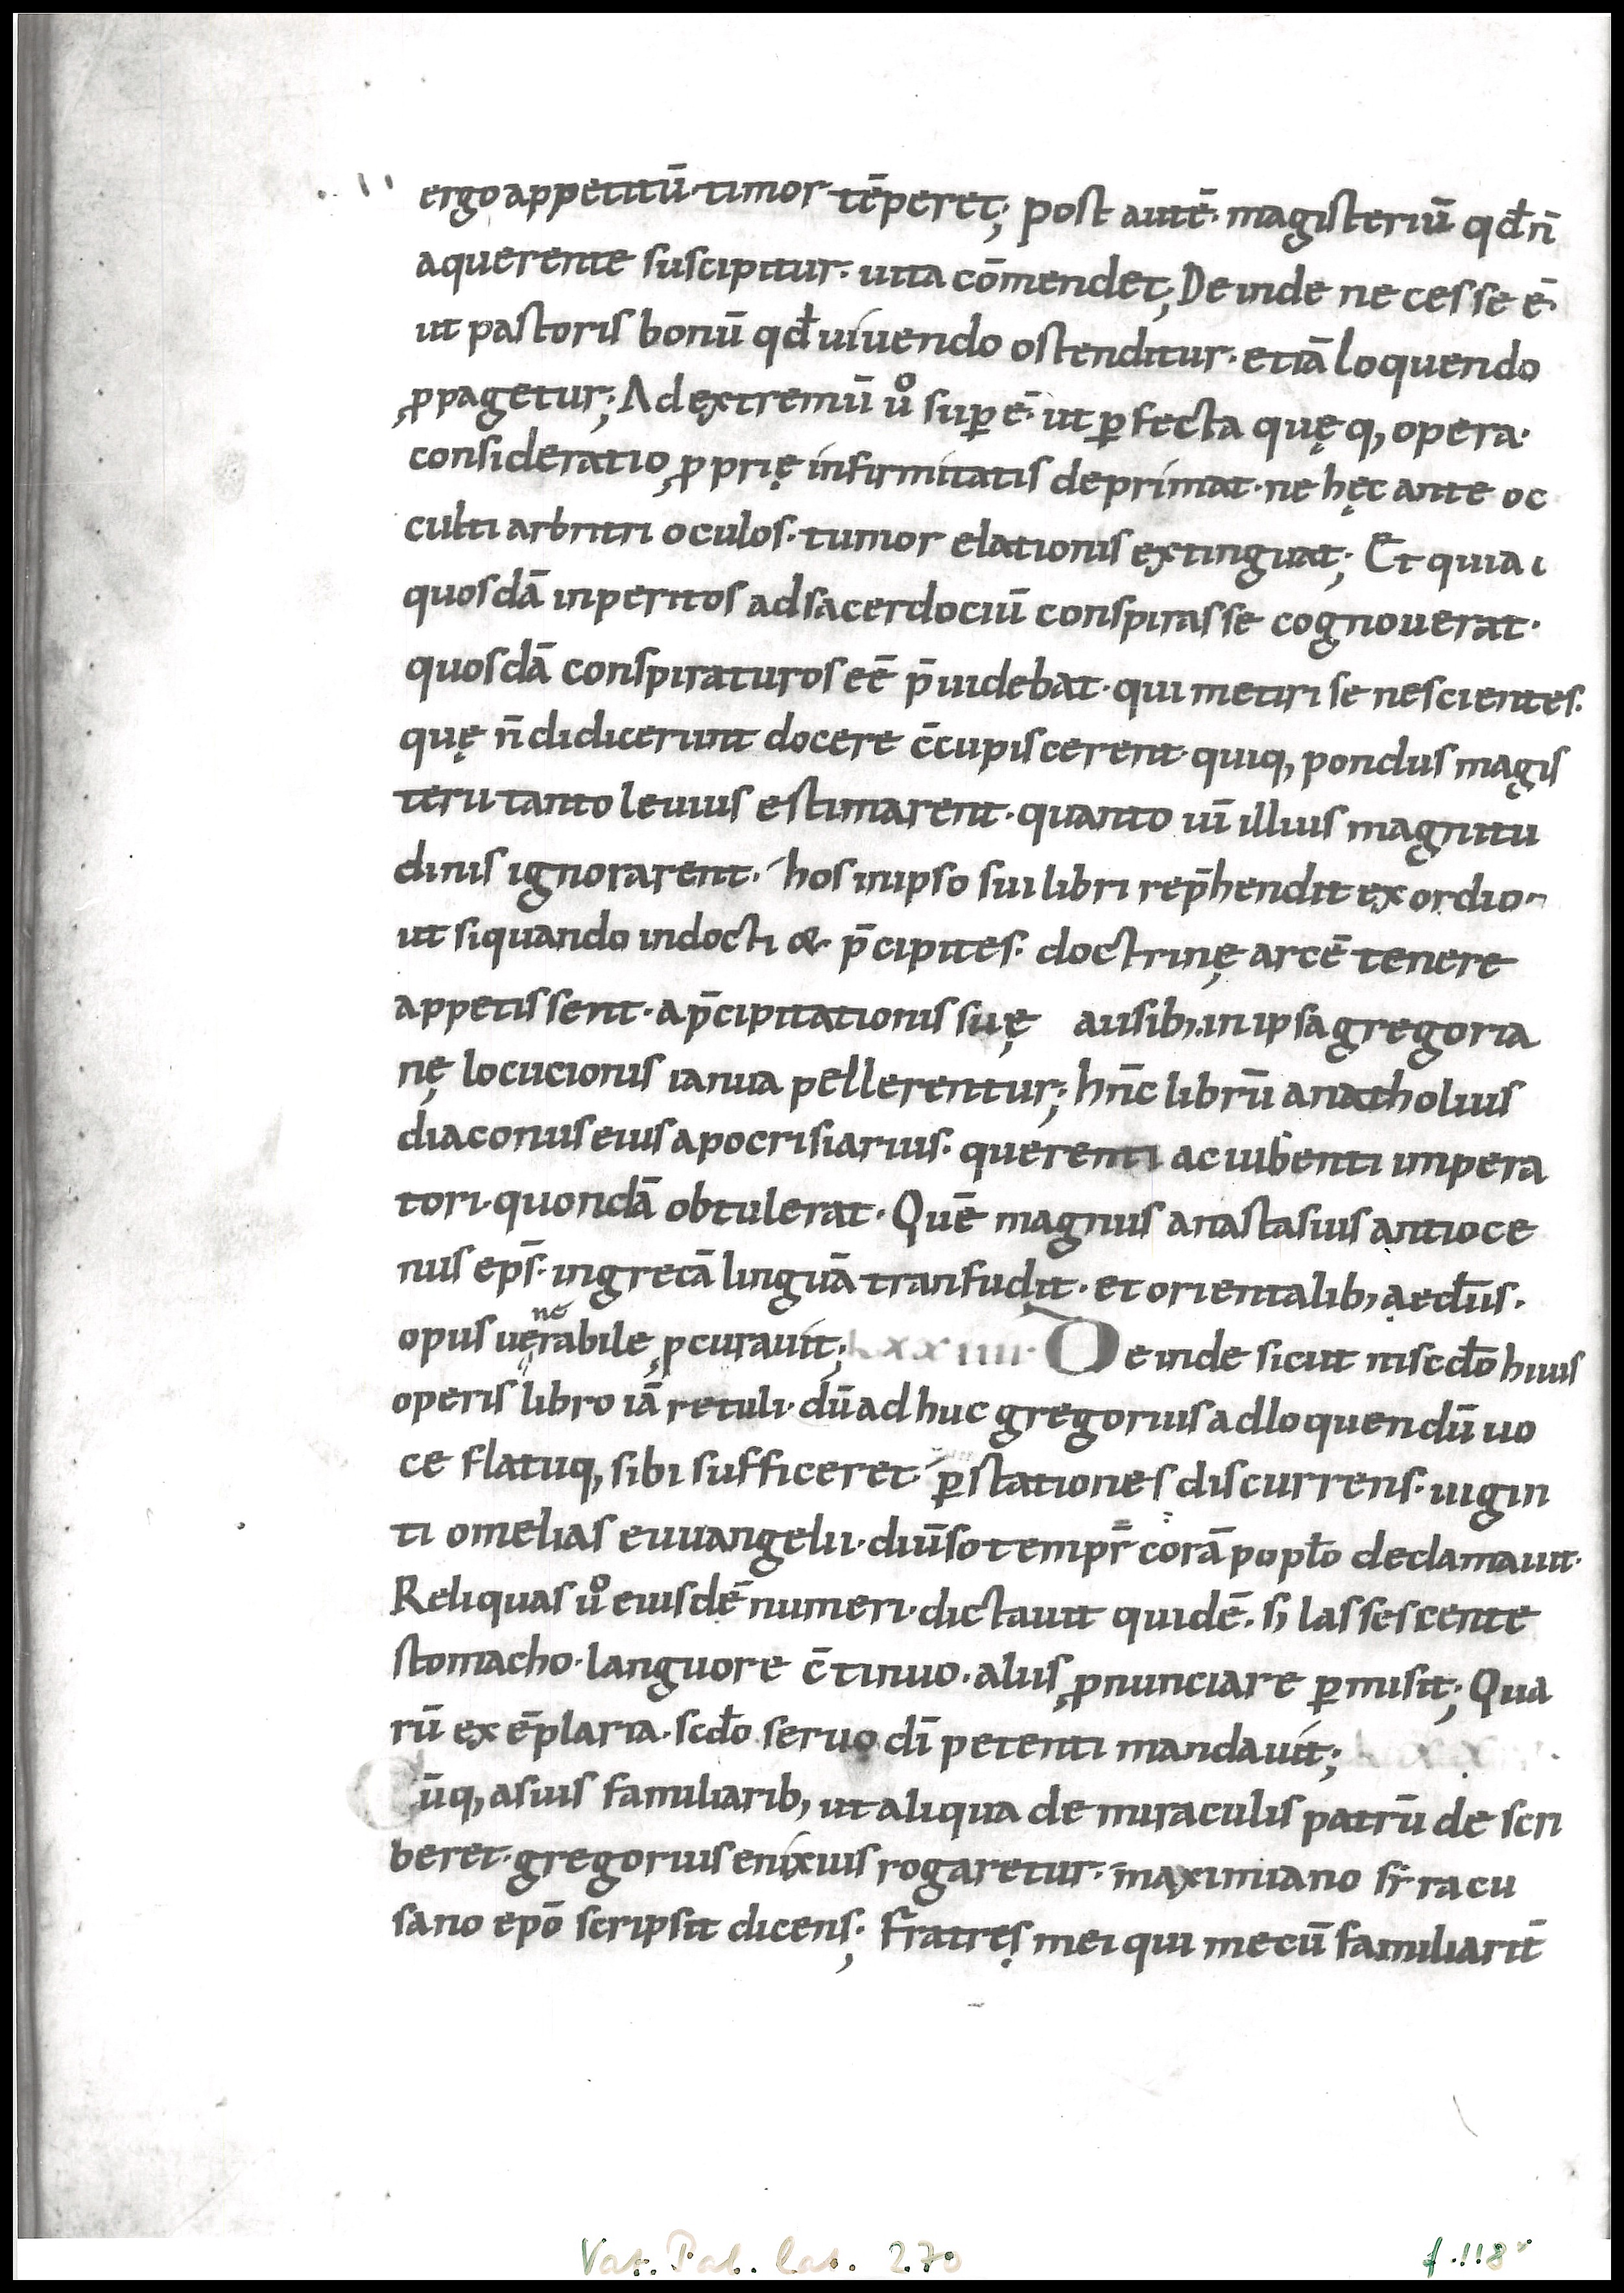 ergo appetitū· timor tēperet; post autē· magisteriū qđ n̄
aquerente suscipitur· uita cōmendet; De inde necesse ē·
ut pastoris bonū qđ uiuendo ostenditur· etiā loquendo
ꝓpagetur; Ad extremū uͦ suꝑ ē· ut ꝑfecta quę q, opera·
consideratio ꝓprię infirmitatis deprimat· ne hęc ante oc
culti arbitri oculos· tumor elationis extinguat; Et quia
quosdā inperitos ad sacerdociū conspirasse cognouerat·
quosdā conspiraturos eē p̄uidebat· qui metiri se nescientes·
quę n̄ didicerunt docere c̄cupiscerent· quiq, pondus magis
terii tanto leuius estimarent· quanto uī illius magnitu
dinis ignorarent· hos in ipso sui libri rep̄hendit exordio·
ut siquando indocti & p̄cipites· doctrinę arcē tenere
appetissent· a p̄cipitationis suę ausib,· in ipsa gregoria
nę locucionis ianua pellerentur; hn̄c librū anatholius
diaconus eius apocrisiarius· querenti ac iubenti impera
tori· quondā obtulerat· Quē magnus anastasius antioce
nus ep̄s· in grecā linguā tranfudit· et orientalib, aeccl̄iis·
opus uęrabile ꝓcurauit; LXXIIII· Deinde sicut in scd̄o huius
ne
operis libro iā retuli· dū adhuc gregorius ad loquendū uo
ce flatuq, sibi sufficeret· ꝑ stationes discurrens· uigin
ti omelias euuangelii· diūso tempr̄ corā popl̄o declamauit·
Reliquas uͦ eiusdē numeri· dictauit quidē· sꝫ lassescente
stomacho· languore c̄tinuo· aliis ꝓnunciare ꝑmisit; Qua
rū exēplaria· scd̄o seruo dī petenti mandauit;
Cūq, a suis familiarib, ut aliqua de miraculis patrū de scri
beret· gregorius enixius rogaretur· maximiano sir̄racu
sano epō scripsit dicens; Fratres mei qui mecū familiarit̄
Vat. Pal. lat. 270
f. 118ᵛ